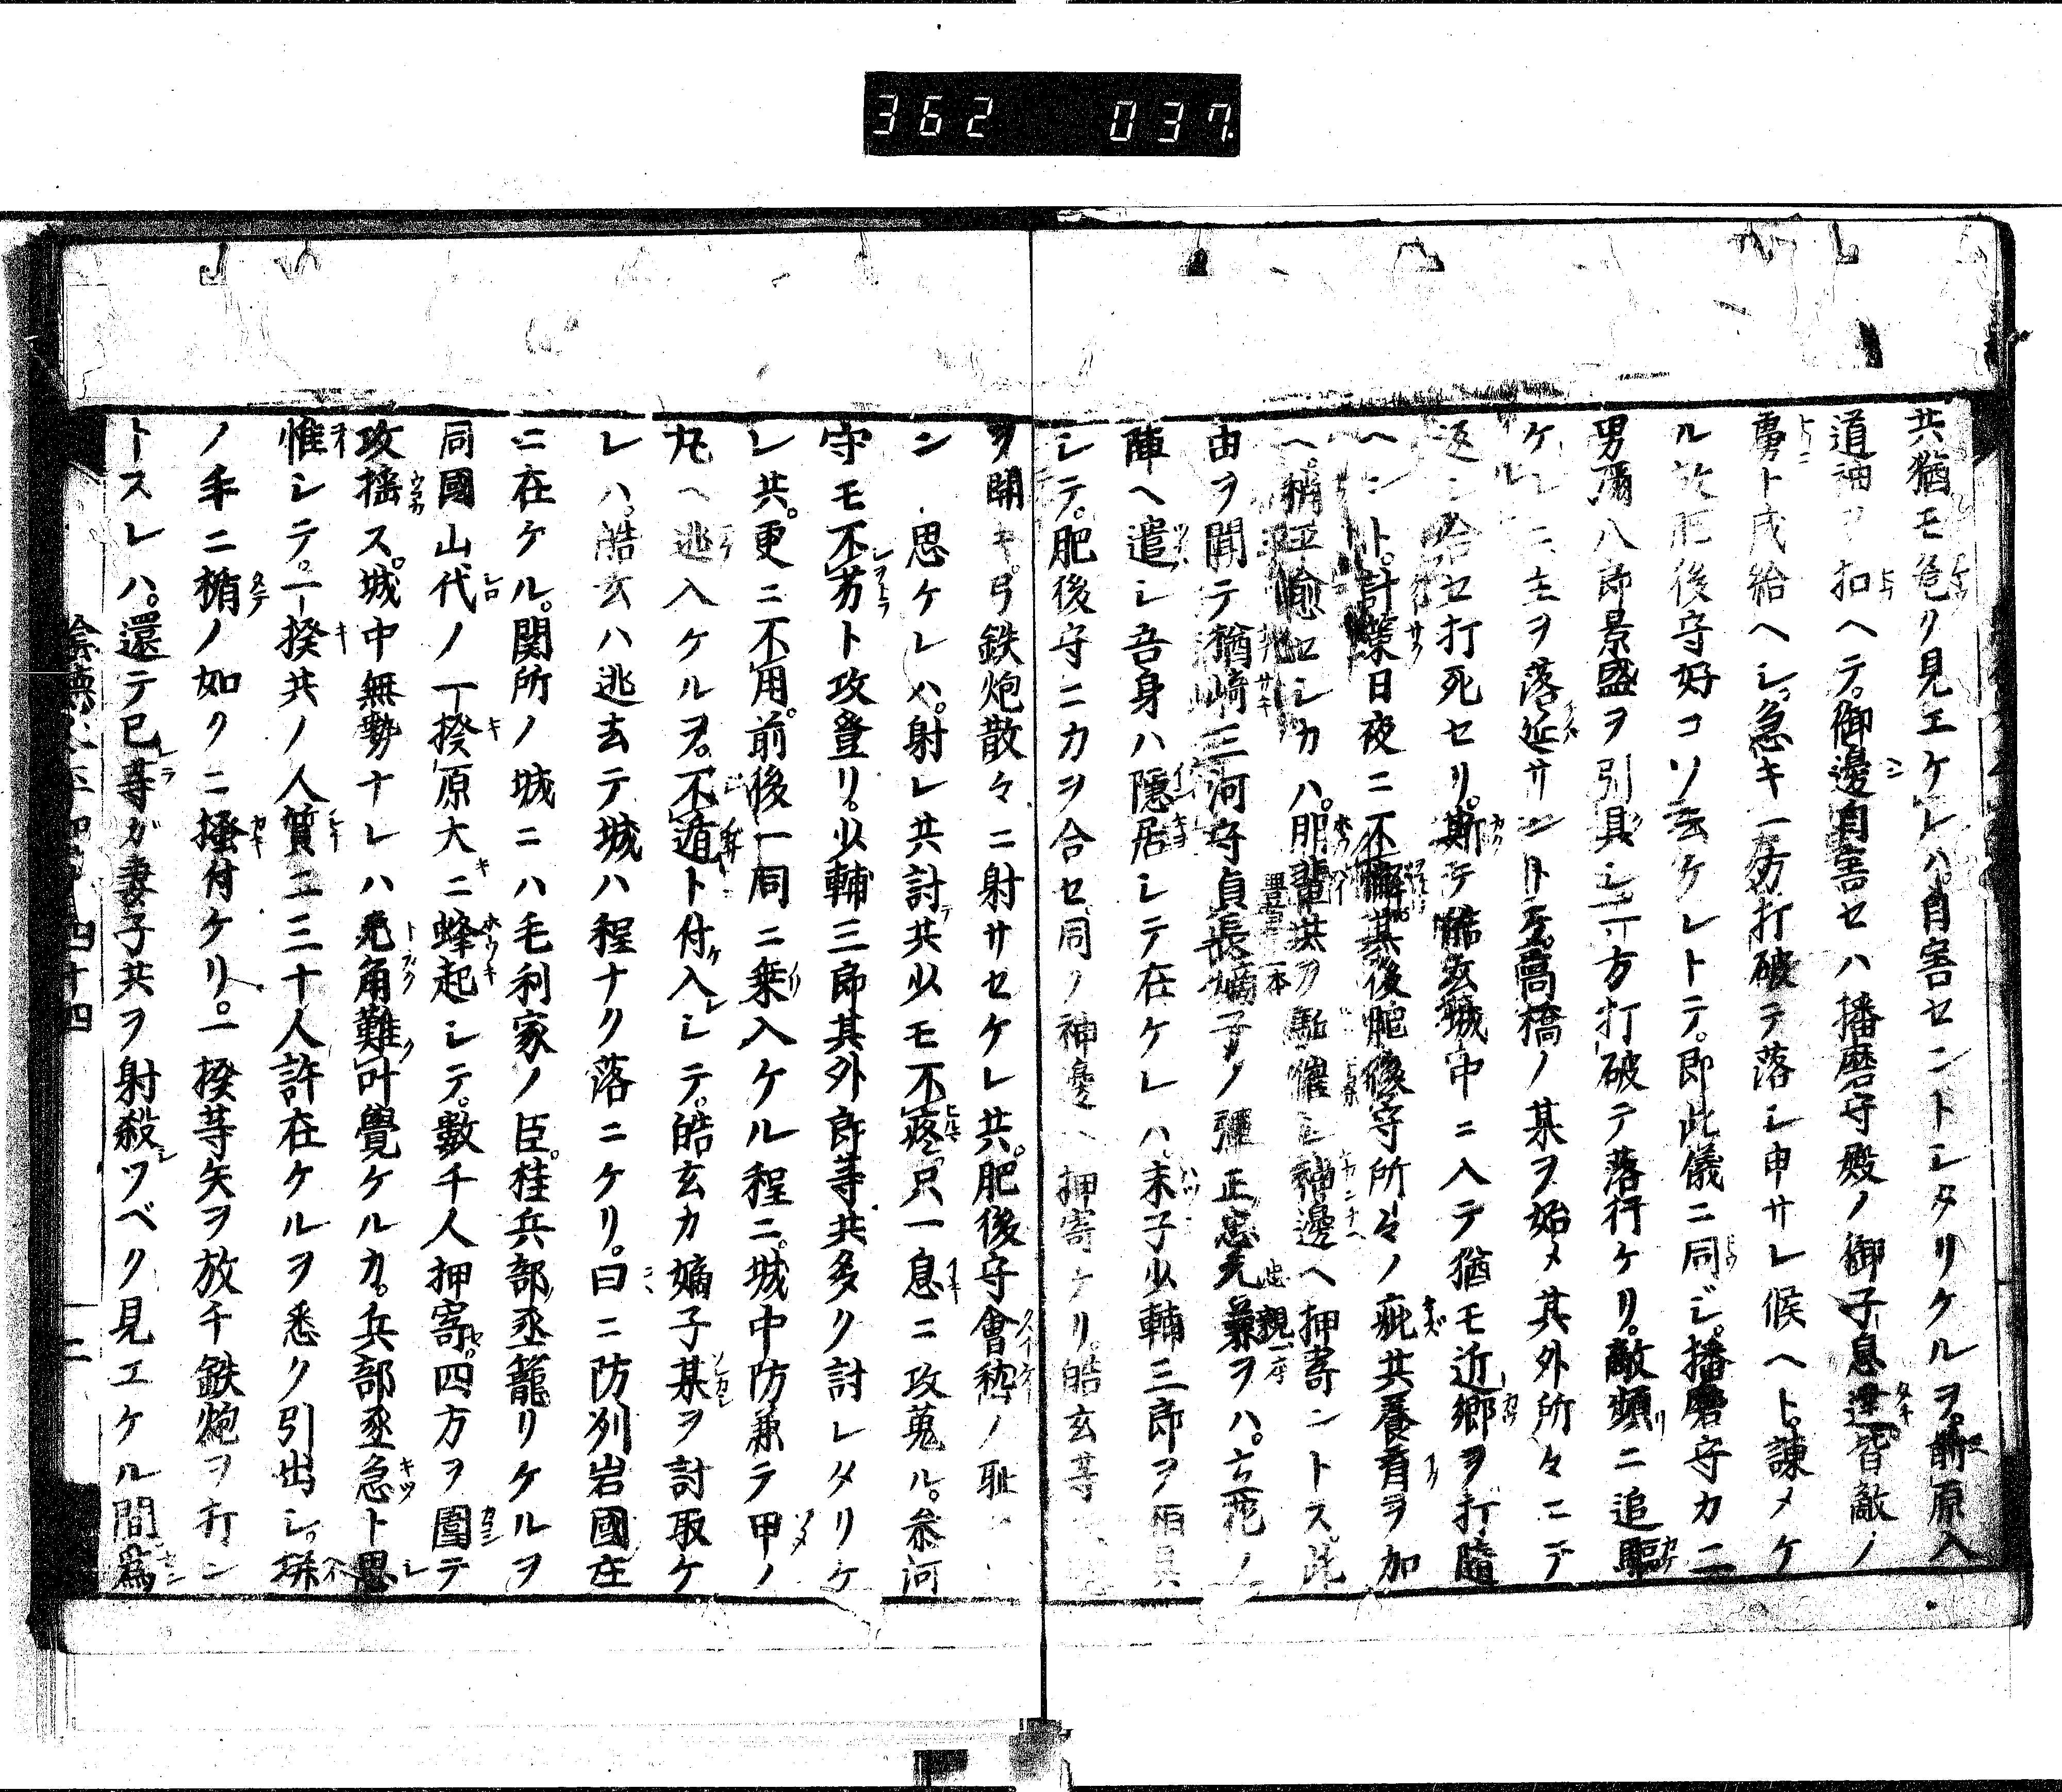 362 037
共猶モ危リ見エケレハ自害セントシタリケルヲ前原入
道袖ヲ扣ヘテ御邊自害セハ播磨守殿ノ御子息達皆敵ノ
虜ト成給ヘシ急キ一方打破テ落シ申サレ候ヘト諫メケ
ル於肥後守好コソ云ケレトテ即此儀ニ同シ播磨守カ二
男彌八郎景盛ヲ引具シ一方打破テ落行ケリ敵頻ニ追駈
ケレニ主ヲ落延サント高橋ノ某ヲ始メ其外所々ニテ
返シ合セ打死セリ斯テ皓玄城中ニ入テ猶モ近郷ヲ打隨
ヘント計策日夜ニ不懈其後肥後守所々ノ疵共養育ヲ加
ヘ稍平愈セシカハ朋輩共ヲ駈催シ神邊ヘ押寄ントス此
由ヲ聞テ猶崎三河守貞長嫡子ノ彈正忠元兼ヲハ立花ノ
陣ヘ遣シ吾身ハ隱居シテ在ケレハ末子少輔三郎ヲ相具
シテ肥後守ニカヲ合セ同ノ神邊ヘ押寄ケリ皓玄等
ヲ開キ弓鉄炮散々ニ射サセケレ共肥後守會稽ノ耻
ン思ケレハ射レ共討共少モ不疼只一息ニ攻蒐ル參河
守モ不劣ト攻登リ少輔三郎其外郎等共多ク討レタリケ
レ共更ニ不用前後一同ニ乗入ケル程ニ城中防兼テ甲ノ
丸ヘ逃入ケルヲ不遁ト付入シテ皓玄カ嫡子某ヲ討取ケ
レハ皓玄ハ逃去テ城ハ程ナク落ニケリ曰ニ防列岩國在
ニ在ケル関所ノ城ニハ毛利家ノ臣桂兵部丞籠リケルヲ
同國山代ノ一揆原大ニ蜂起シテ數千人押寄四方ヲ圍テ
攻揺ス城中無勢ナレハ兎角難叶覺ケルカ兵部丞急ト思
惟シテ一揆共ノ人質二三十人許在ケルヲ悉ク引出シ塀
ノ手ニ楯ノ如クニ搔付ケリ一揆等矢ヲ放千鉄炮ヲ打ン
トスレハ還テ已等ガ妻子共ヲ射殺ツベク見エケル間為
陰徳 四十四 二